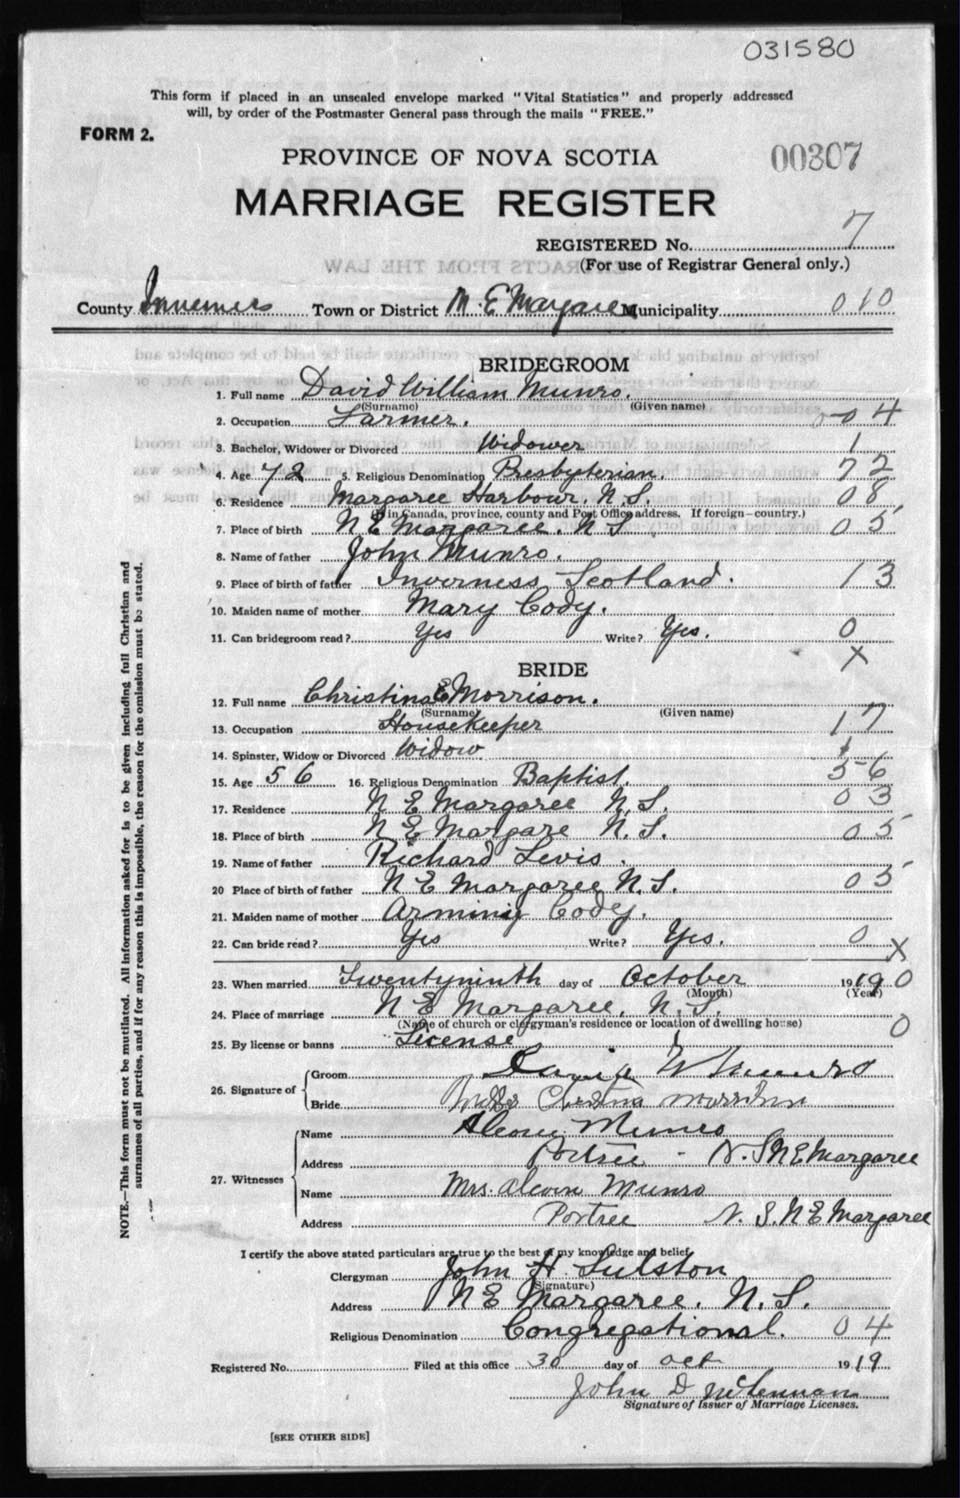 031580
This form if placed in an unsealed envelope marked "Vital Statistics" and properly addressed
will, by order of the Postmaster General pass through the mails "FREE."
FORM 2.
PROVINCE OF NOVA SCOTIA
00307
MARRIAGE REGISTER
REGISTERED No. 7
(For use of Registrar General only.)
County Inverness Town or District N. E. Margaree Municipality 010
BRIDEGROOM
1. Full name David William Munro.
(Surname) (Given name)
2. Occupation Farmer. 04
3. Bachelor, Widower or Divorced Widower 1
4. Age 72 5. Religious Denomination Presbyterian. 72
6. Residence Margaree Harbour. N.S. 08
(In Canada, province, county and Post Office address. If foreign—country.)
7. Place of birth N E Margaree. N S 05
8. Name of father John Munro.
9. Place of birth of father Inverness, Scotland. 13
10. Maiden name of mother Mary Cody.
11. Can bridegroom read? Yes Write? Yes. 0
X
BRIDE
12. Full name Christina E Morrison.
(Surname) (Given name)
13. Occupation Housekeeper 17
14. Spinster, Widow or Divorced Widow
15. Age 56 16. Religious Denomination Baptist. 56
17. Residence N E Margaree N.S. 03
18. Place of birth N E Margare N.S. 05
19. Name of father Richard Levis.
20 Place of birth of father N E Margaree, N.S. 05
21. Maiden name of mother Arminy Cody.
22. Can bride read? Yes Write? Yes. 0 X
23. When married Twentyninth day of October 1919 0
(Month) (Year)
24. Place of marriage N E Margaree, N.S.
(Name of church or clergyman's residence or location of dwelling house) 0
25. By license or banns License
26. Signature of
Groom David W Munro
Bride Christina Morrison
27. Witnesses
Name Munro
Address Portree - N.S N E Margaree
Name Mrs. Munro
Address Portree N.S. N E Margaree
I certify the above stated particulars are true to the best of my knowledge and belief.
Clergyman John H. Sulston
(Signature)
Address N E Margaree. N.S.
Religious Denomination Congregational. 04
Registered No. Filed at this office 30 day of Oct 1919
John D McLennan
Signature of Issuer of Marriage Licenses.
[SEE OTHER SIDE]
NOTE.—This form must not be mutilated. All information asked for is to be given including full Christian and
surnames of all parties, and if for any reason this is impossible, the reason for the omission must be stated.